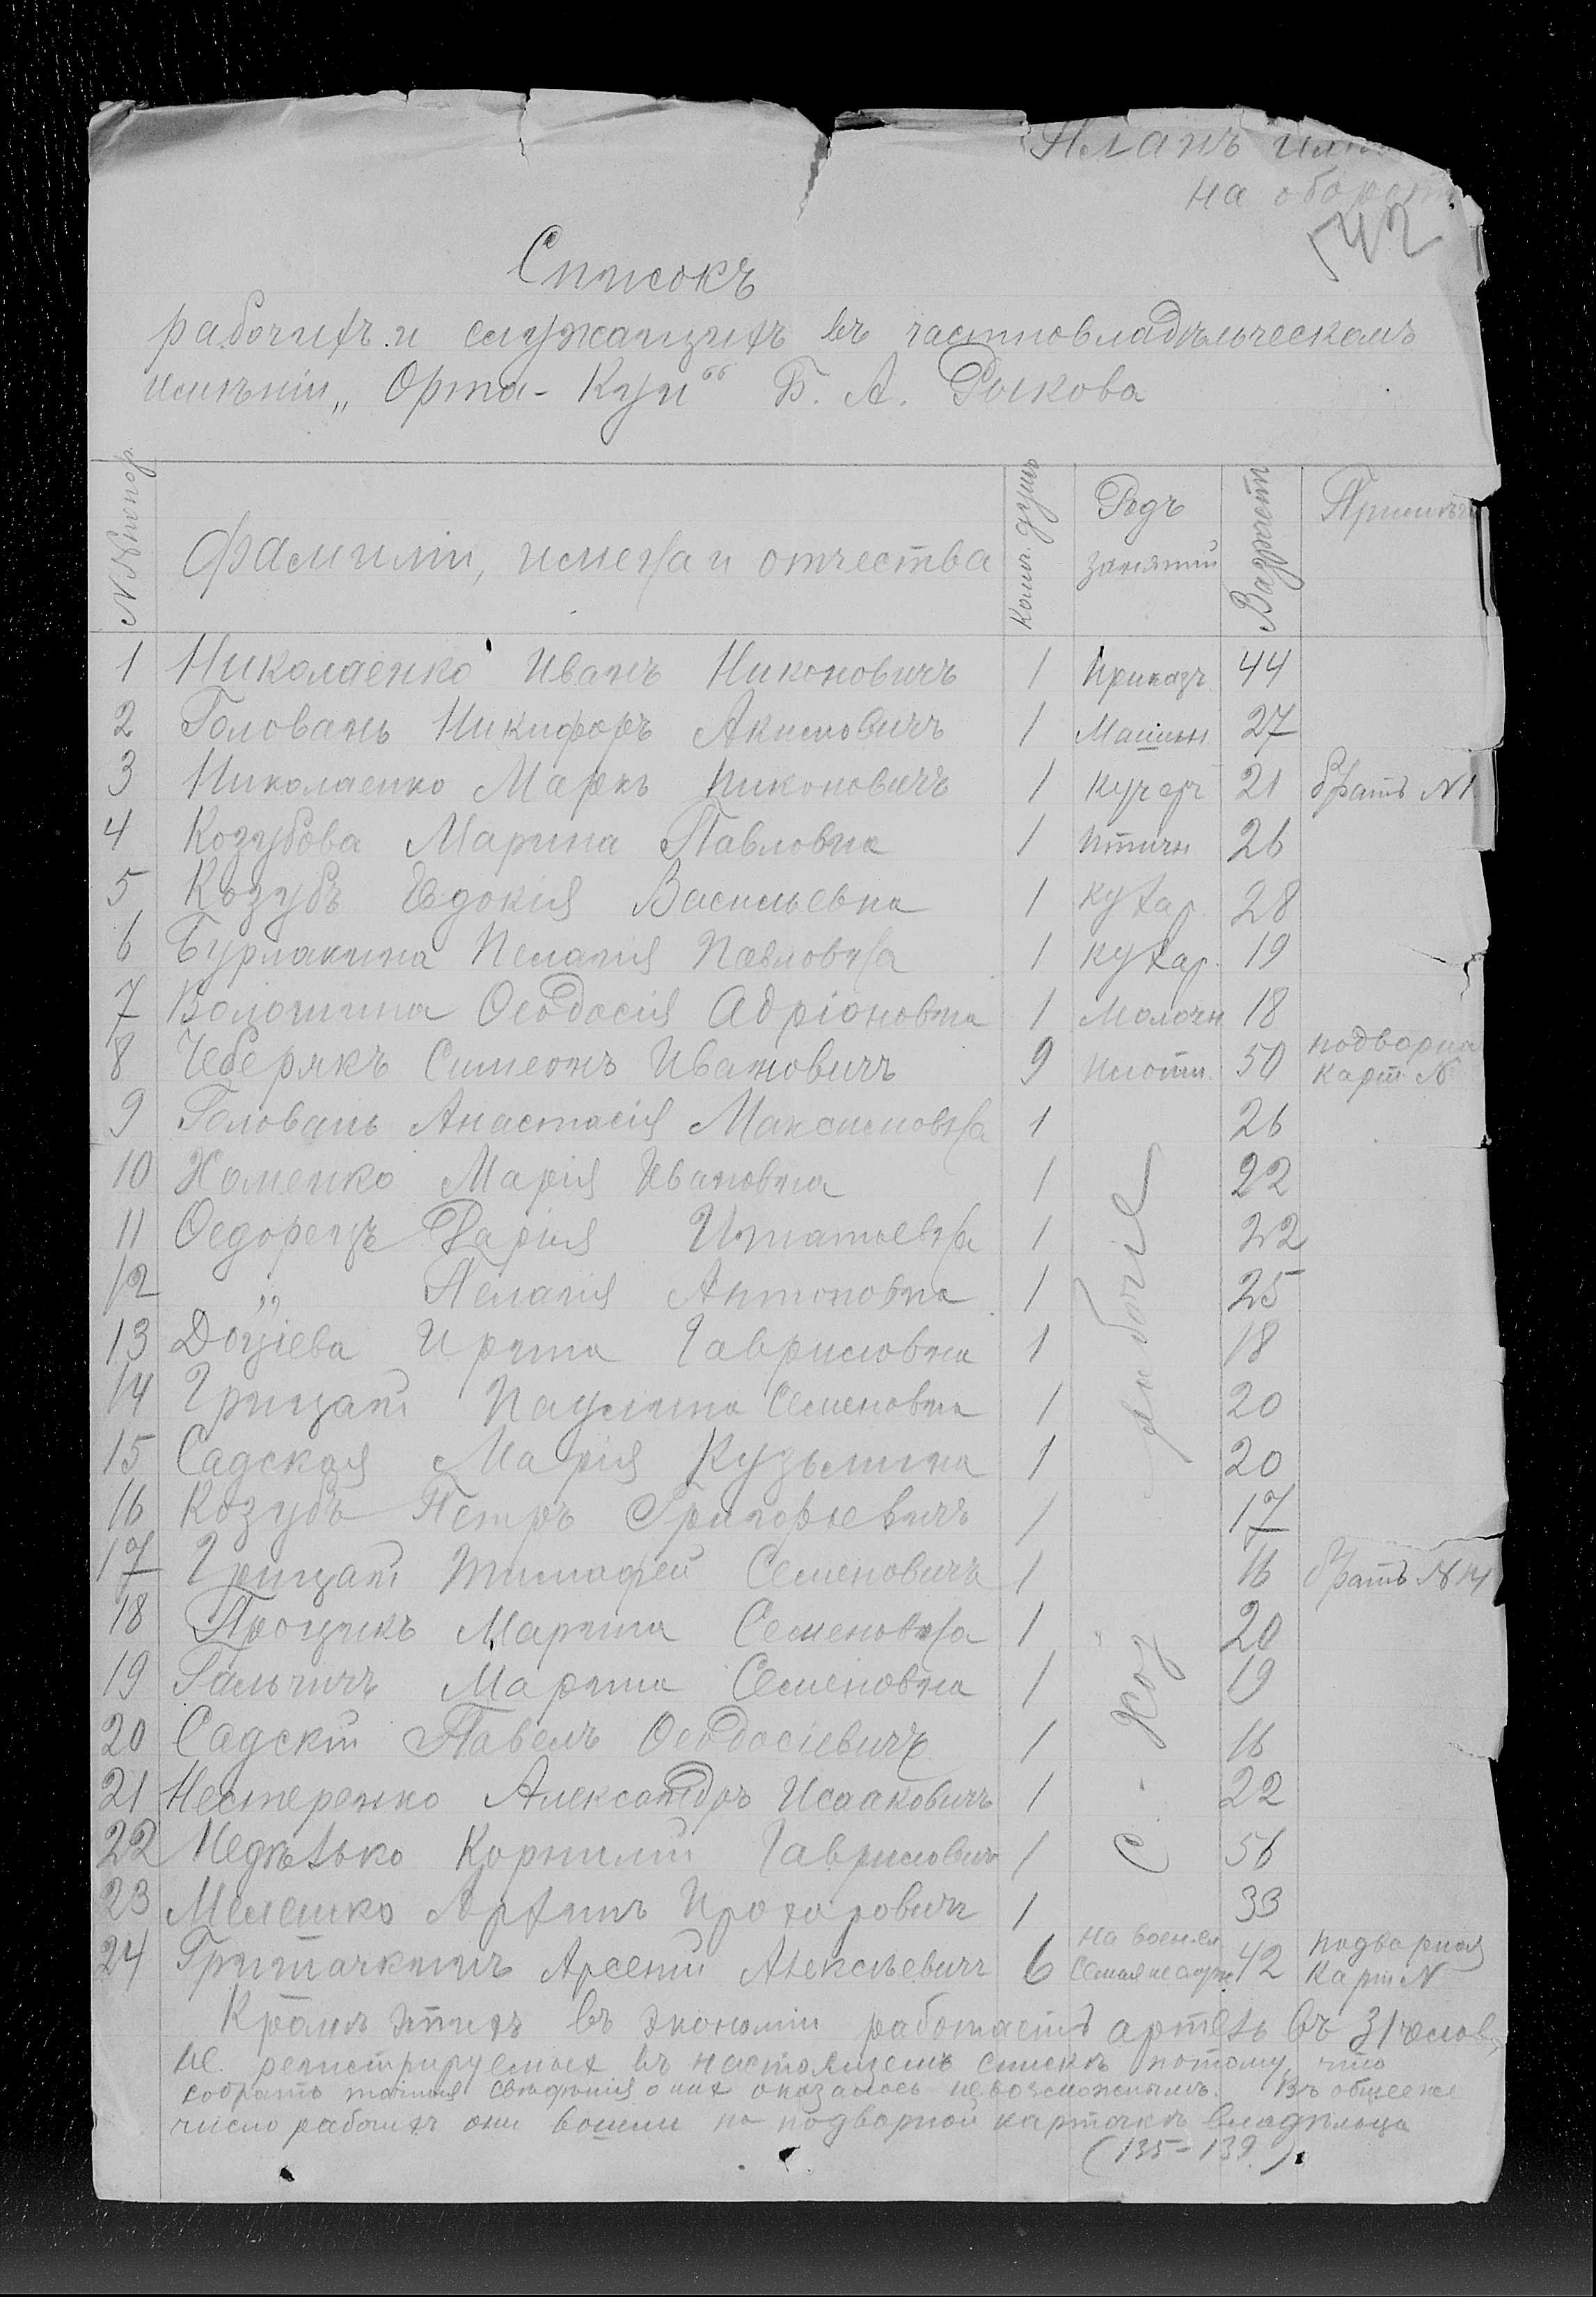 Планъ имѣн
на оборот
142
Списокъ
рабочихъ и служащихъ въ частновладѣльческомъ
имѣніи „Орта-Куи“ Б. А. Рыкова
№№ по пор.
Фамиліи, имена и отчества
Колич. душъ
Родъ занятій
Возрастъ
Примѣч
1 Николаенко Иванъ Никоновичъ 1 Приказч 44
2 Головань Никифоръ Акимовичъ 1 Машин 27
3 Николаенко Маркъ Никоновичъ 1 Кучеръ 21 братъ №1
4 Козубова Марина Павловна 1 Птичн 26
5 Козубъ Евдокія Васильевна 1 кухар. 28
6 Бурлакина Пелагія Павловна 1 кухар. 19
7 Волошина Ѳеодосія Адріоновна 1 Молочн 18
8 Чеберякъ Симеонъ Ивановичъ 9 Плотн. 50 подворная карт №
9 Головань Анастасія Максимовна 1 26
10 Хоменко Марія Ивановна 1 22
11 Ѳедорецъ Дарія Игнатьевна 1 22
12 „ Пелагія Антоновна 1 25
13 Доціева Ирина Гавриловна 1 18
14 Грицай Паулина Семеновна 1 20
15 Садская Марія Кузьмина 1 20
16 Козубъ Петръ Григорьевичъ 1 17
17 Грицай Тимофей Семеновичъ 1 16 братъ №14
18 Процикъ Марина Семеновна 1 20
19 Гальчичъ Марина Семеновна 1 19
20 Садскій Павелъ Ѳеодосіевичъ 1 16
21 Нестеренко Александръ Исааковичъ 1 22
22 Недѣлько Корнилій Гавриловичъ 1 56
23 Мелешко Архипъ Прохоровичъ 1 33
24 Арсеній Алексѣевичъ 6 42 подворная карт №
С.-хоз рабочіе
Кромѣ этихъ въ экономіи работаетъ артель въ 31 челов,
не регистрируемых въ настоящемъ спискѣ потому что
собрать точныя свѣдѣнія о них оказалось невозможнымъ. Въ общее же
число рабочихъ они вошли по подворной карточкѣ владѣльца
(135-139)